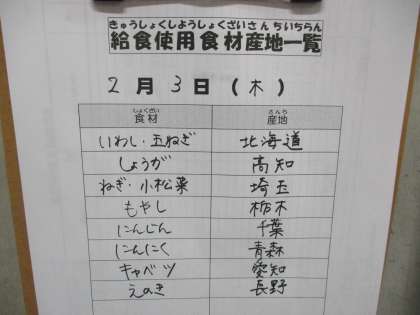 きゅうしょくしようしょくざいさんちいちらん
給食使用食材産地一覧
2月3日(木)
しょくざい さんち
食材 産地
いわし・玉ねぎ 北海道
しょうが 高知
ねぎ・小松菜 埼玉
もやし 栃木
にんじん 千葉
にんにく 青森
キャベツ 愛知
えのき 長野